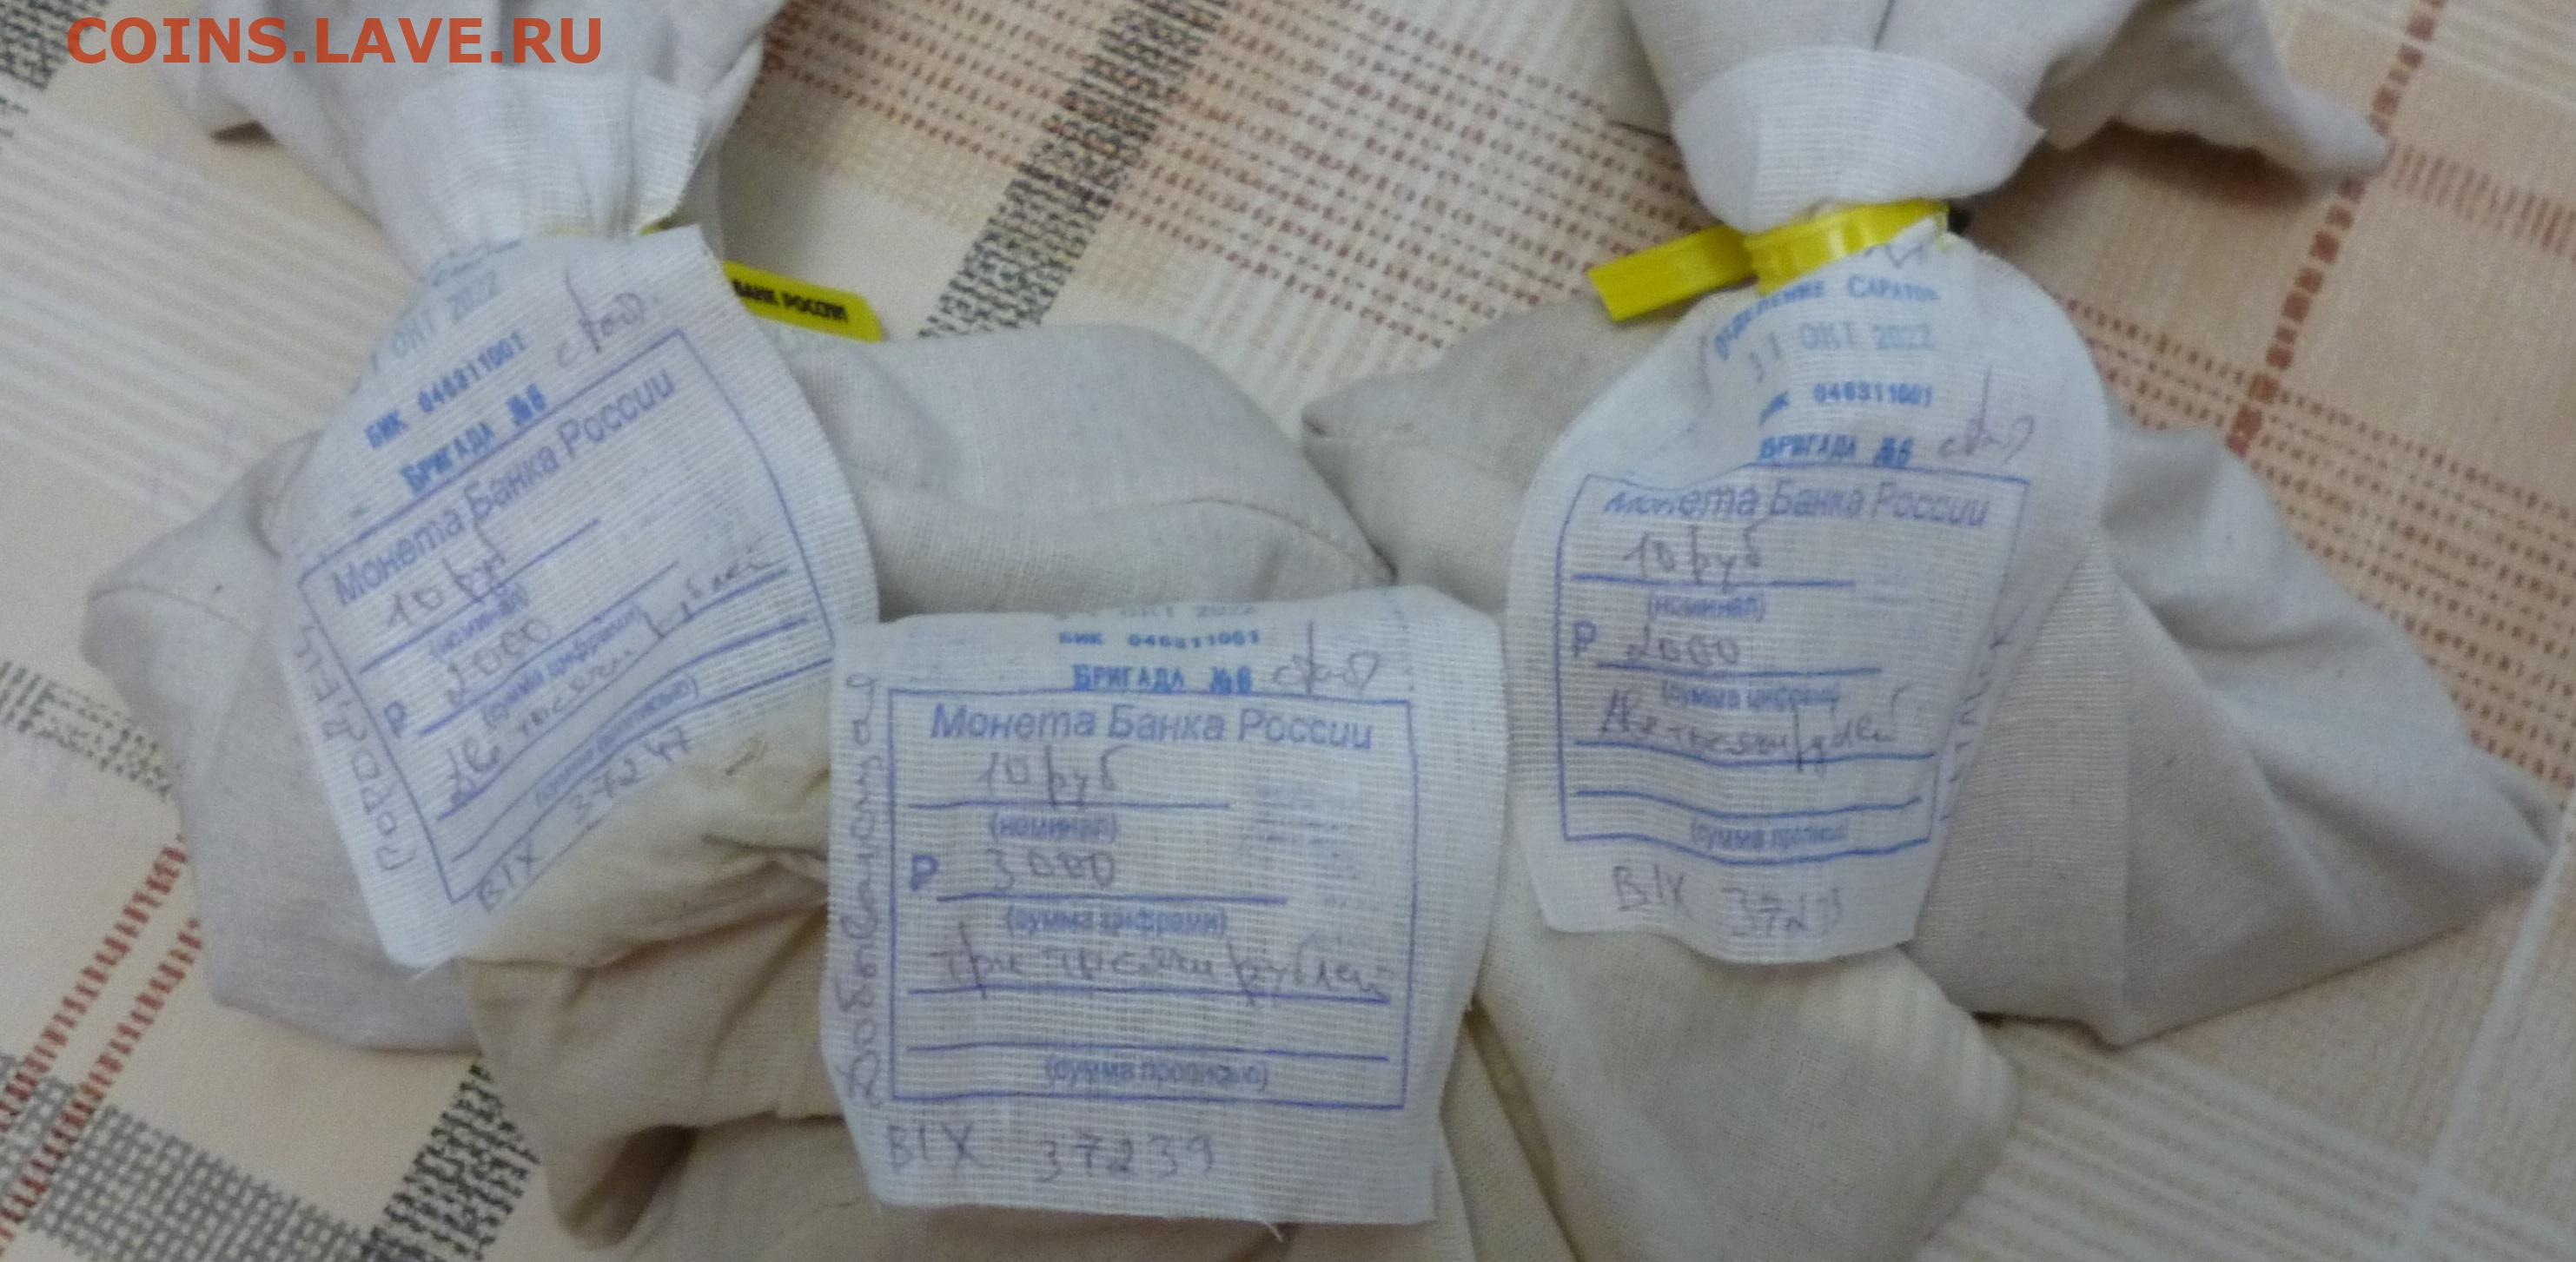 COINS.LAVE.RU
ОКТ 2022
БИК 046311001
БРИГАДА №6
Монета Банка России
10 руб
(номинал)
Р 2000
(сумма цифрами)
Две тысячи рублей
(сумма прописью)
BIX 37247
БАНК РОССИИ
ОКТ 2022
БИК 046311001
БРИГАДА №6
Монета Банка России
10 руб
(номинал)
Р 3000
(сумма цифрами)
Три тысячи рублей
(сумма прописью)
BIX 37239
ОТДЕЛЕНИЕ САРАТОВ
31 ОКТ 2022
БИК 046311001
БРИГАДА №6
Монета Банка России
10 руб
(номинал)
Р 2000
(сумма цифрами)
Две тысячи рублей
(сумма прописью)
BIX